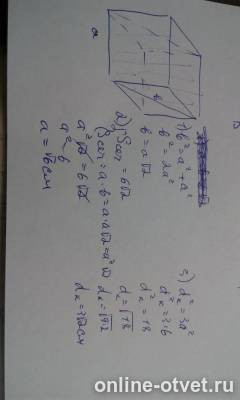 a
b
1) b² = a² + a²
b² = 2a²
b = a√2
2) Sсеч = 6√2
Sсеч = a·b = a·a√2 = a²√2
a²√2 = 6√2
a² = 6
a = √6 см
3) dк² = 3a²
dк² = 3·6
dк² = 18
dк = √18
dк = √9·2
dк = 3√2 см
online-otvet.ru